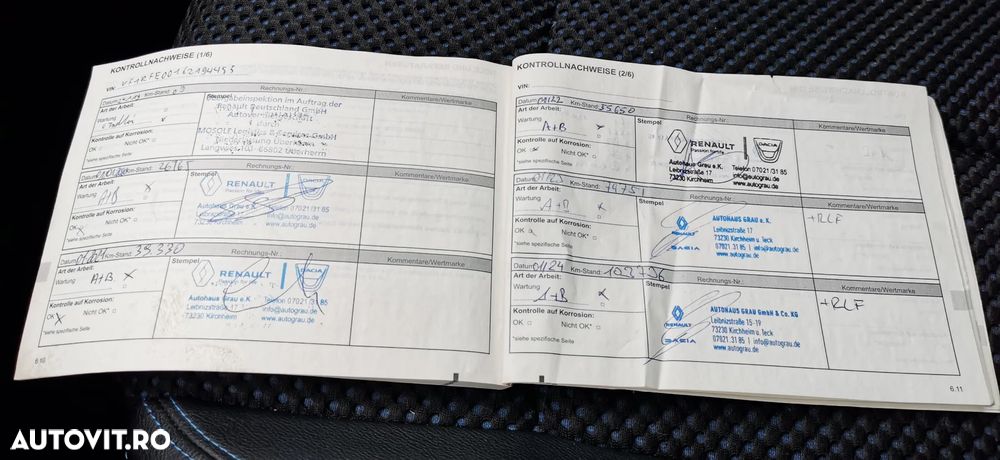 KONTROLLNACHWEISE (1/6)
VIN:
Datum: Km-Stand: 09 Rechnungs-Nr.: Kommentare/Wertmarke
Art der Arbeit: Stempel
Wartung
Übergabeinspektion im Auftrag der
Renault Deutschland GmbH
Kontrolle auf Korrosion:
OK Nicht OK*
*siehe spezifische Seite
MOSOLF Logistics & Services GmbH
Niederlassung Überherrn
66802 Überherrn
Datum: Km-Stand: 26165 Rechnungs-Nr.: Kommentare/Wertmarke
Art der Arbeit: x Stempel
Wartung A+B
Kontrolle auf Korrosion:
OK x Nicht OK*
*siehe spezifische Seite
RENAULT
Passion for life
DACIA
Autohaus Grau e.K. Telefon 07021/31 85
Leibnizstraße info@autograu.de
73230 Kirchheim www.autograu.de
Datum: Km-Stand: 39.330 Rechnungs-Nr.: Kommentare/Wertmarke
Art der Arbeit: x Stempel
Wartung A+B
Kontrolle auf Korrosion:
OK x Nicht OK*
*siehe spezifische Seite
RENAULT
Passion for life
DACIA
Autohaus Grau e.K. Telefon 07021/31 85
Leibnizstraße 17 info@autograu.de
73230 Kirchheim www.autograu.de
6.10
KONTROLLNACHWEISE (2/6)
VIN:
Datum: 01/22 Km-Stand: Rechnungs-Nr.: Kommentare/Wertmarke
Art der Arbeit: Stempel
Wartung A+B x
Kontrolle auf Korrosion:
OK x Nicht OK*
*siehe spezifische Seite
RENAULT
Passion for life
DACIA
Autohaus Grau e.K. Telefon 07021/31 85
Leibnizstraße 17 info@autograu.de
73230 Kirchheim www.autograu.de
Datum: 01/23 Km-Stand: 79751 Rechnungs-Nr.: Kommentare/Wertmarke
Art der Arbeit: Stempel
Wartung A+B x
+RLF
Kontrolle auf Korrosion:
OK x Nicht OK*
*siehe spezifische Seite
RENAULT
DACIA
AUTOHAUS GRAU e.K.
Leibnizstraße 17
73230 Kirchheim u. Teck
07021.31 85 | info@autograu.de
www.autograu.de
Datum: 01/24 Km-Stand: Rechnungs-Nr.: Kommentare/Wertmarke
Art der Arbeit: Stempel
Wartung A+B x
+RLF
Kontrolle auf Korrosion:
OK x Nicht OK*
*siehe spezifische Seite
RENAULT
DACIA
AUTOHAUS GRAU GmbH & Co. KG
Leibnizstraße 15-19
73230 Kirchheim u. Teck
07021.31 85 | info@autograu.de
www.autograu.de
6.11
AUTOVIT.RO